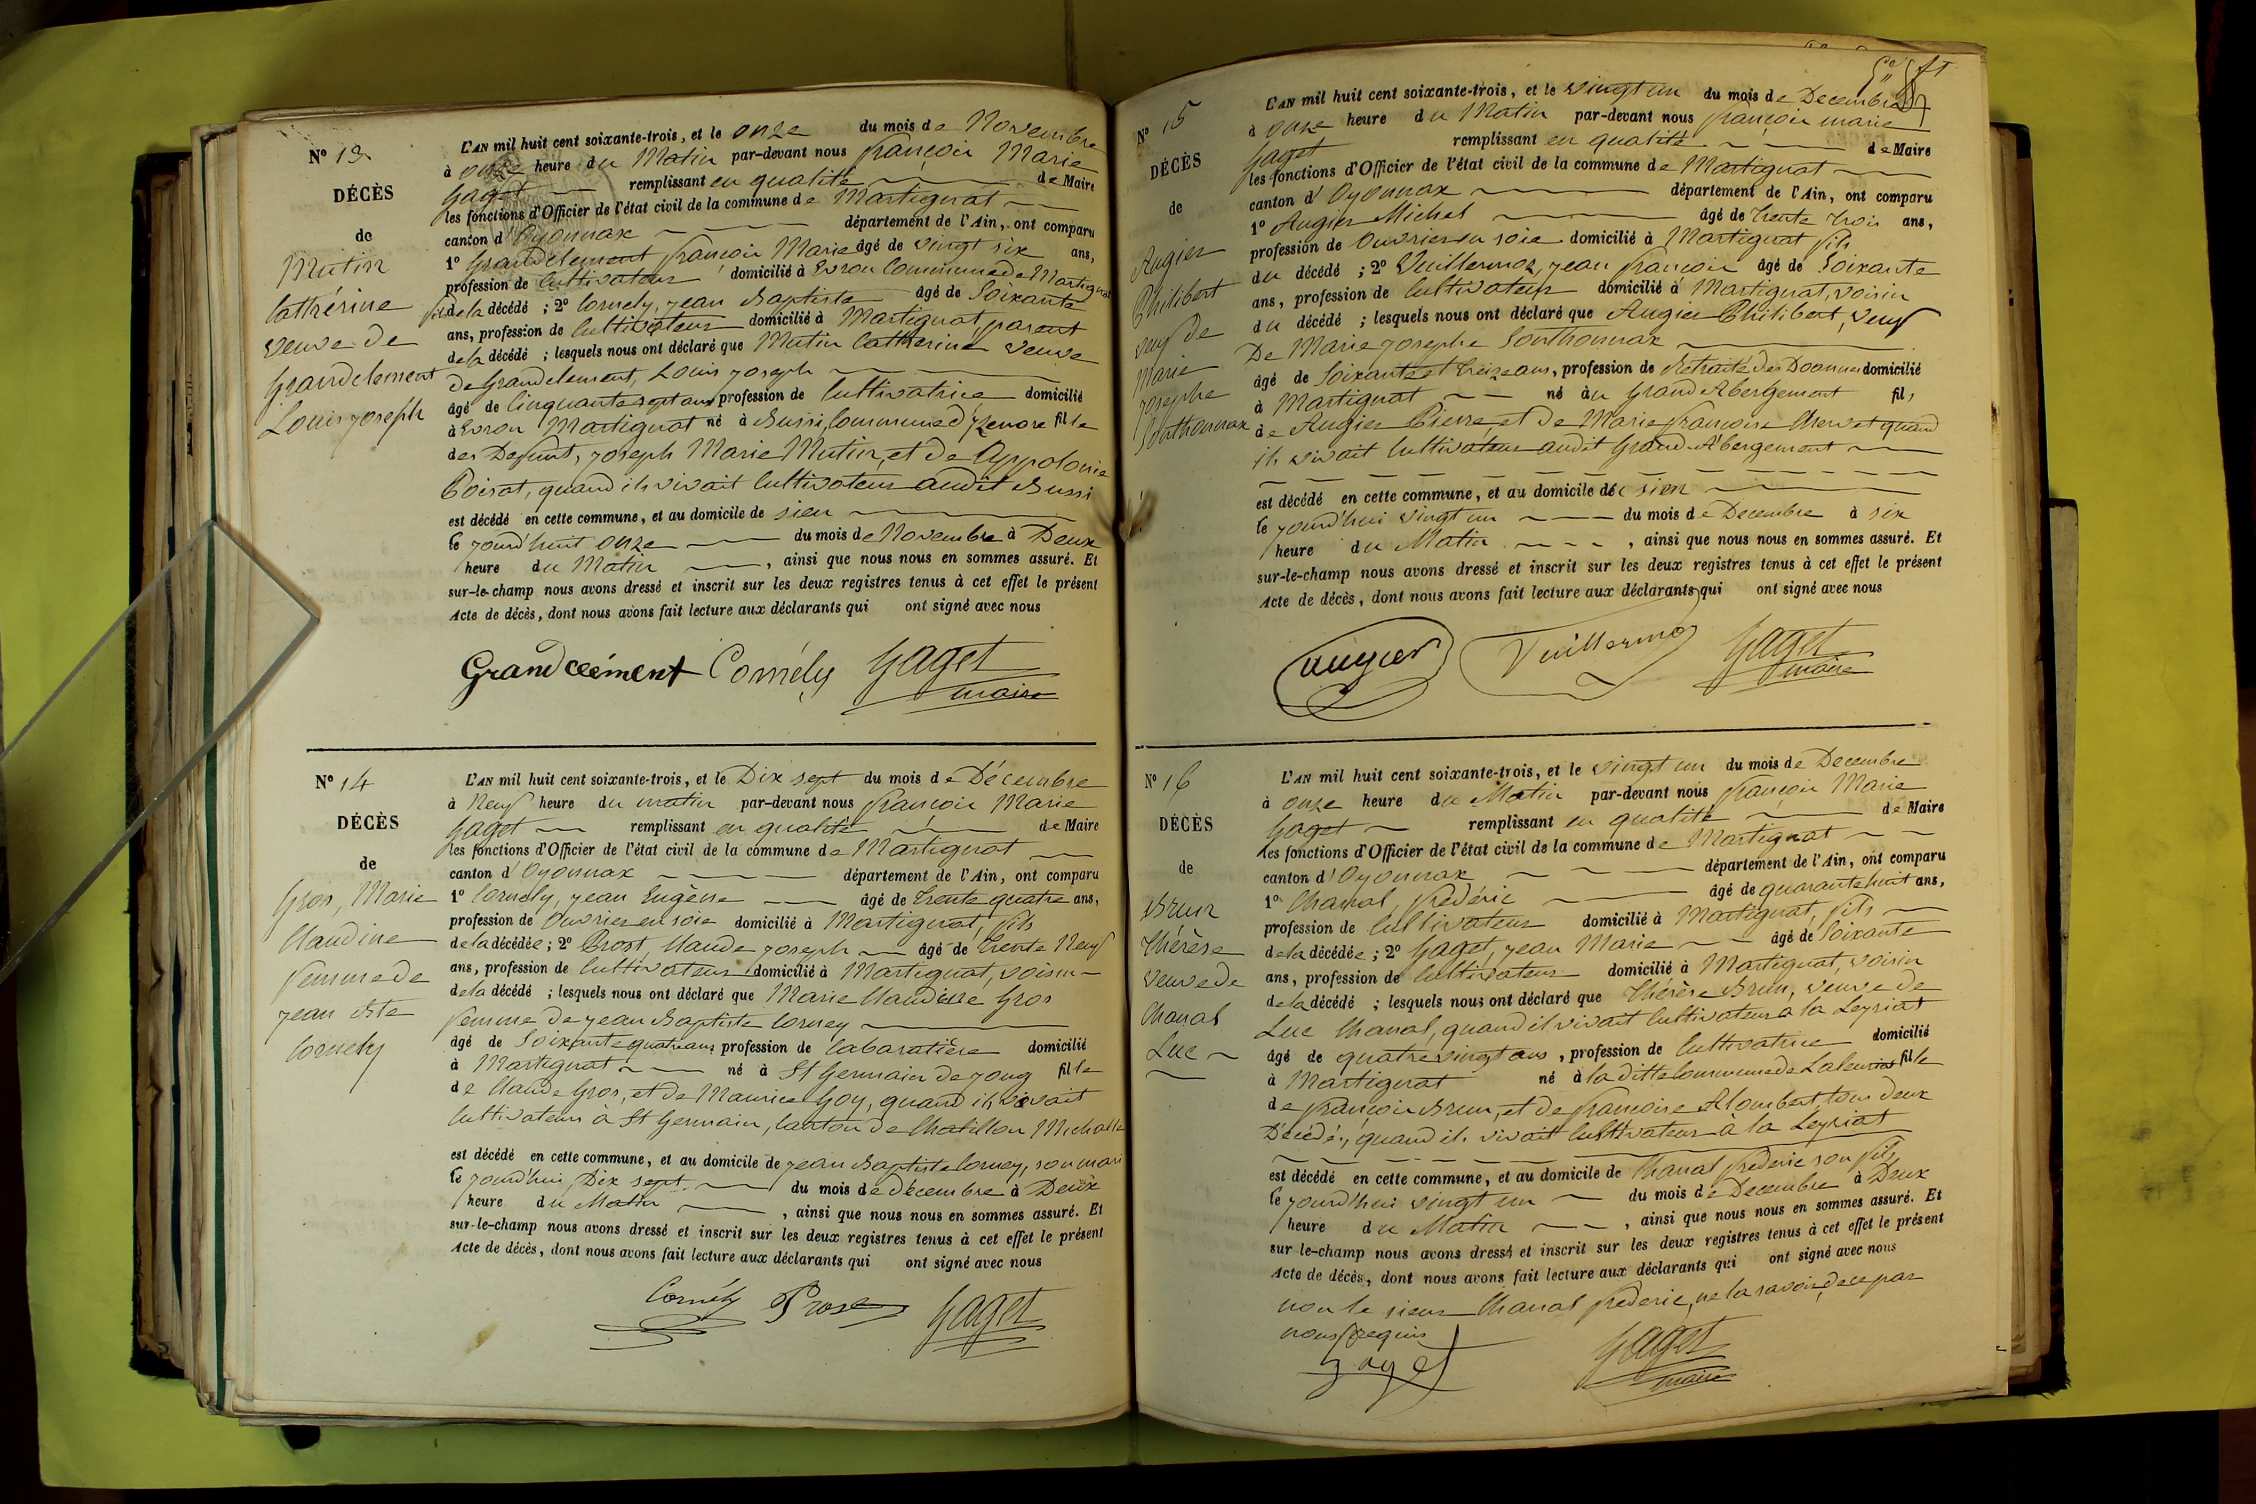 N° 13
DÉCÈS
de
Mutin
Cathérine
veuve de
Grandclement
Louis joseph
L'AN mil huit cent soixante-trois, et le onze du mois de Novembre
à onze heure du Matin par-devant nous françois Marie
Gaget remplissant en qualité de Maire
les fonctions d'Officier de l'état civil de la commune de Martignat
canton d'Oyonnax département de l'Ain, ont comparu
1° Grandclement françois Marie âgé de vingt six ans,
profession de Cultivateur domicilié à Evron Commune de Martignat
fils de la décédé ; 2° Cornely, jean Baptiste âgé de Soixante
ans, profession de Cultivateur domicilié à Martignat, parent
de la décédé ; lesquels nous ont déclaré que Mutin Catherine veuve
de Grandclement, Louis joseph
âgé de Cinquante sept ans profession de Cultivatrice domicilié
à Evron Martignat né à Bussi, Commune d'Izenore fille
des Defunt, joseph Marie Mutin, et de Appolonie
Poirat, quand ils vivait Cultivateur audit Bussi
est décédé en cette commune, et au domicile de sien
le jourd'huit onze du mois de Novembre à Deux
heure du Matin , ainsi que nous nous en sommes assuré. Et
sur-le-champ nous avons dressé et inscrit sur les deux registres tenus à cet effet le présent
Acte de décès, dont nous avons fait lecture aux déclarants qui ont signé avec nous
Grandclément Cornély Gaget
maire
N° 14
DÉCÈS
de
Gros, Marie
Claudine
femme de
jean Bte
Cornely
L'AN mil huit cent soixante-trois, et le Dix sept du mois de Décembre
à Neuf heure du matin par-devant nous françois Marie
Gaget remplissant en qualité de Maire
les fonctions d'Officier de l'état civil de la commune de Martignat
canton d'Oyonnax département de l'Ain, ont comparu
1° Cornely, jean Eugène âgé de trente quatre ans,
profession de Ouvrier en soie domicilié à Martignat, fils
de la décédée ; 2° Prost, Claude joseph âgé de trente Neuf
ans, profession de Cultivateur domicilié à Martignat, voisin
de la décédé ; lesquels nous ont déclaré que Marie Claudine Gros
femme de jean Baptiste Corney
âgé de Soixante quatre ans profession de Cabaratière domicilié
à Martignat né à St Germain de joug fille
de Claude Gros, et de Maurice Goy, quand ils vivait
Cultivateur à St Germain, Canton de Chatillon Michaille
est décédé en cette commune, et au domicile de jean Baptiste Corney, son mari
le jourd'hui Dix sept du mois de décembre à Deux
heure du Matin , ainsi que nous nous en sommes assuré. Et
sur-le-champ nous avons dressé et inscrit sur les deux registres tenus à cet effet le présent
Acte de décès, dont nous avons fait lecture aux déclarants qui ont signé avec nous
Cornély Prost Gaget
N° 15
DÉCÈS
de
Augier
Philibert
veuf de
Marie
josephe
Southonnax
L'AN mil huit cent soixante-trois, et le vingt un du mois de Decembre
à onze heure du Matin par-devant nous françois marie
Gaget remplissant en qualité de Maire
les fonctions d'Officier de l'état civil de la commune de Martignat
canton d'Oyonnax département de l'Ain, ont comparu
1° Augier Michel âgé de trente trois ans,
profession de Ouvrier en soie domicilié à Martignat fils
du décédé ; 2° Vuillermoz, jean françois âgé de Soixante
ans, profession de Cultivateur domicilié à Martignat, voisin
du décédé ; lesquels nous ont déclaré que Augier Philibert, veuf
De Marie josephe Southonnax
âgé de Soixante et treize ans, profession de Retraité des Douanes domicilié
à Martignat né au Grand Abergement fils
de Augier Pierre et de Marie françoise quand
ils vivait Cultivateur audit Grand-Abergement
est décédé en cette commune, et au domicile de sien
le jourd'hui vingt un du mois de Decembre à six
heure du Matin , ainsi que nous nous en sommes assuré. Et
sur-le-champ nous avons dressé et inscrit sur les deux registres tenus à cet effet le présent
Acte de décès, dont nous avons fait lecture aux déclarants qui ont signé avec nous
Augier Vuillermoz Gaget
maire
N° 16
DÉCÈS
de
Brun
Thérèse
veuve de
Chanal
Luc
L'AN mil huit cent soixante-trois, et le vingt un du mois de Decembre
à onze heure du Matin par-devant nous françois Marie
Gaget remplissant en qualité de Maire
les fonctions d'Officier de l'état civil de la commune de Martignat
canton d'Oyonnax département de l'Ain, ont comparu
1° Chanal, frédéric âgé de quarante huit ans,
profession de Cultivateur domicilié à Martignat, fils
de la décédée ; 2° Gaget, jean Marie âgé de Soixante
ans, profession de Cultivateur domicilié à Martignat, voisin
de la décédé ; lesquels nous ont déclaré que Thérèse Brun, veuve de
Luc Chanal, quand il vivait Cultivateur à la Leyriat
âgé de quatre vingt ans , profession de Cultivatrice domicilié
à Martignat né à la ditte Commune de fille
de françois Brun, et de françoise Alombert, tous deux
Décédés, quand ils vivait Cultivateur à la Leyriat
est décédé en cette commune, et au domicile de Chanal frederic son fils
le jourd'hui vingt un du mois de Decembre à Deux
heure du Matin , ainsi que nous nous en sommes assuré. Et
sur-le-champ nous avons dressé et inscrit sur les deux registres tenus à cet effet le présent
Acte de décès, dont nous avons fait lecture aux déclarants qui ont signé avec nous
non le sieur Chanal frederic, ne la savoir, de ce par
nous requis
Gaget Gaget
maire